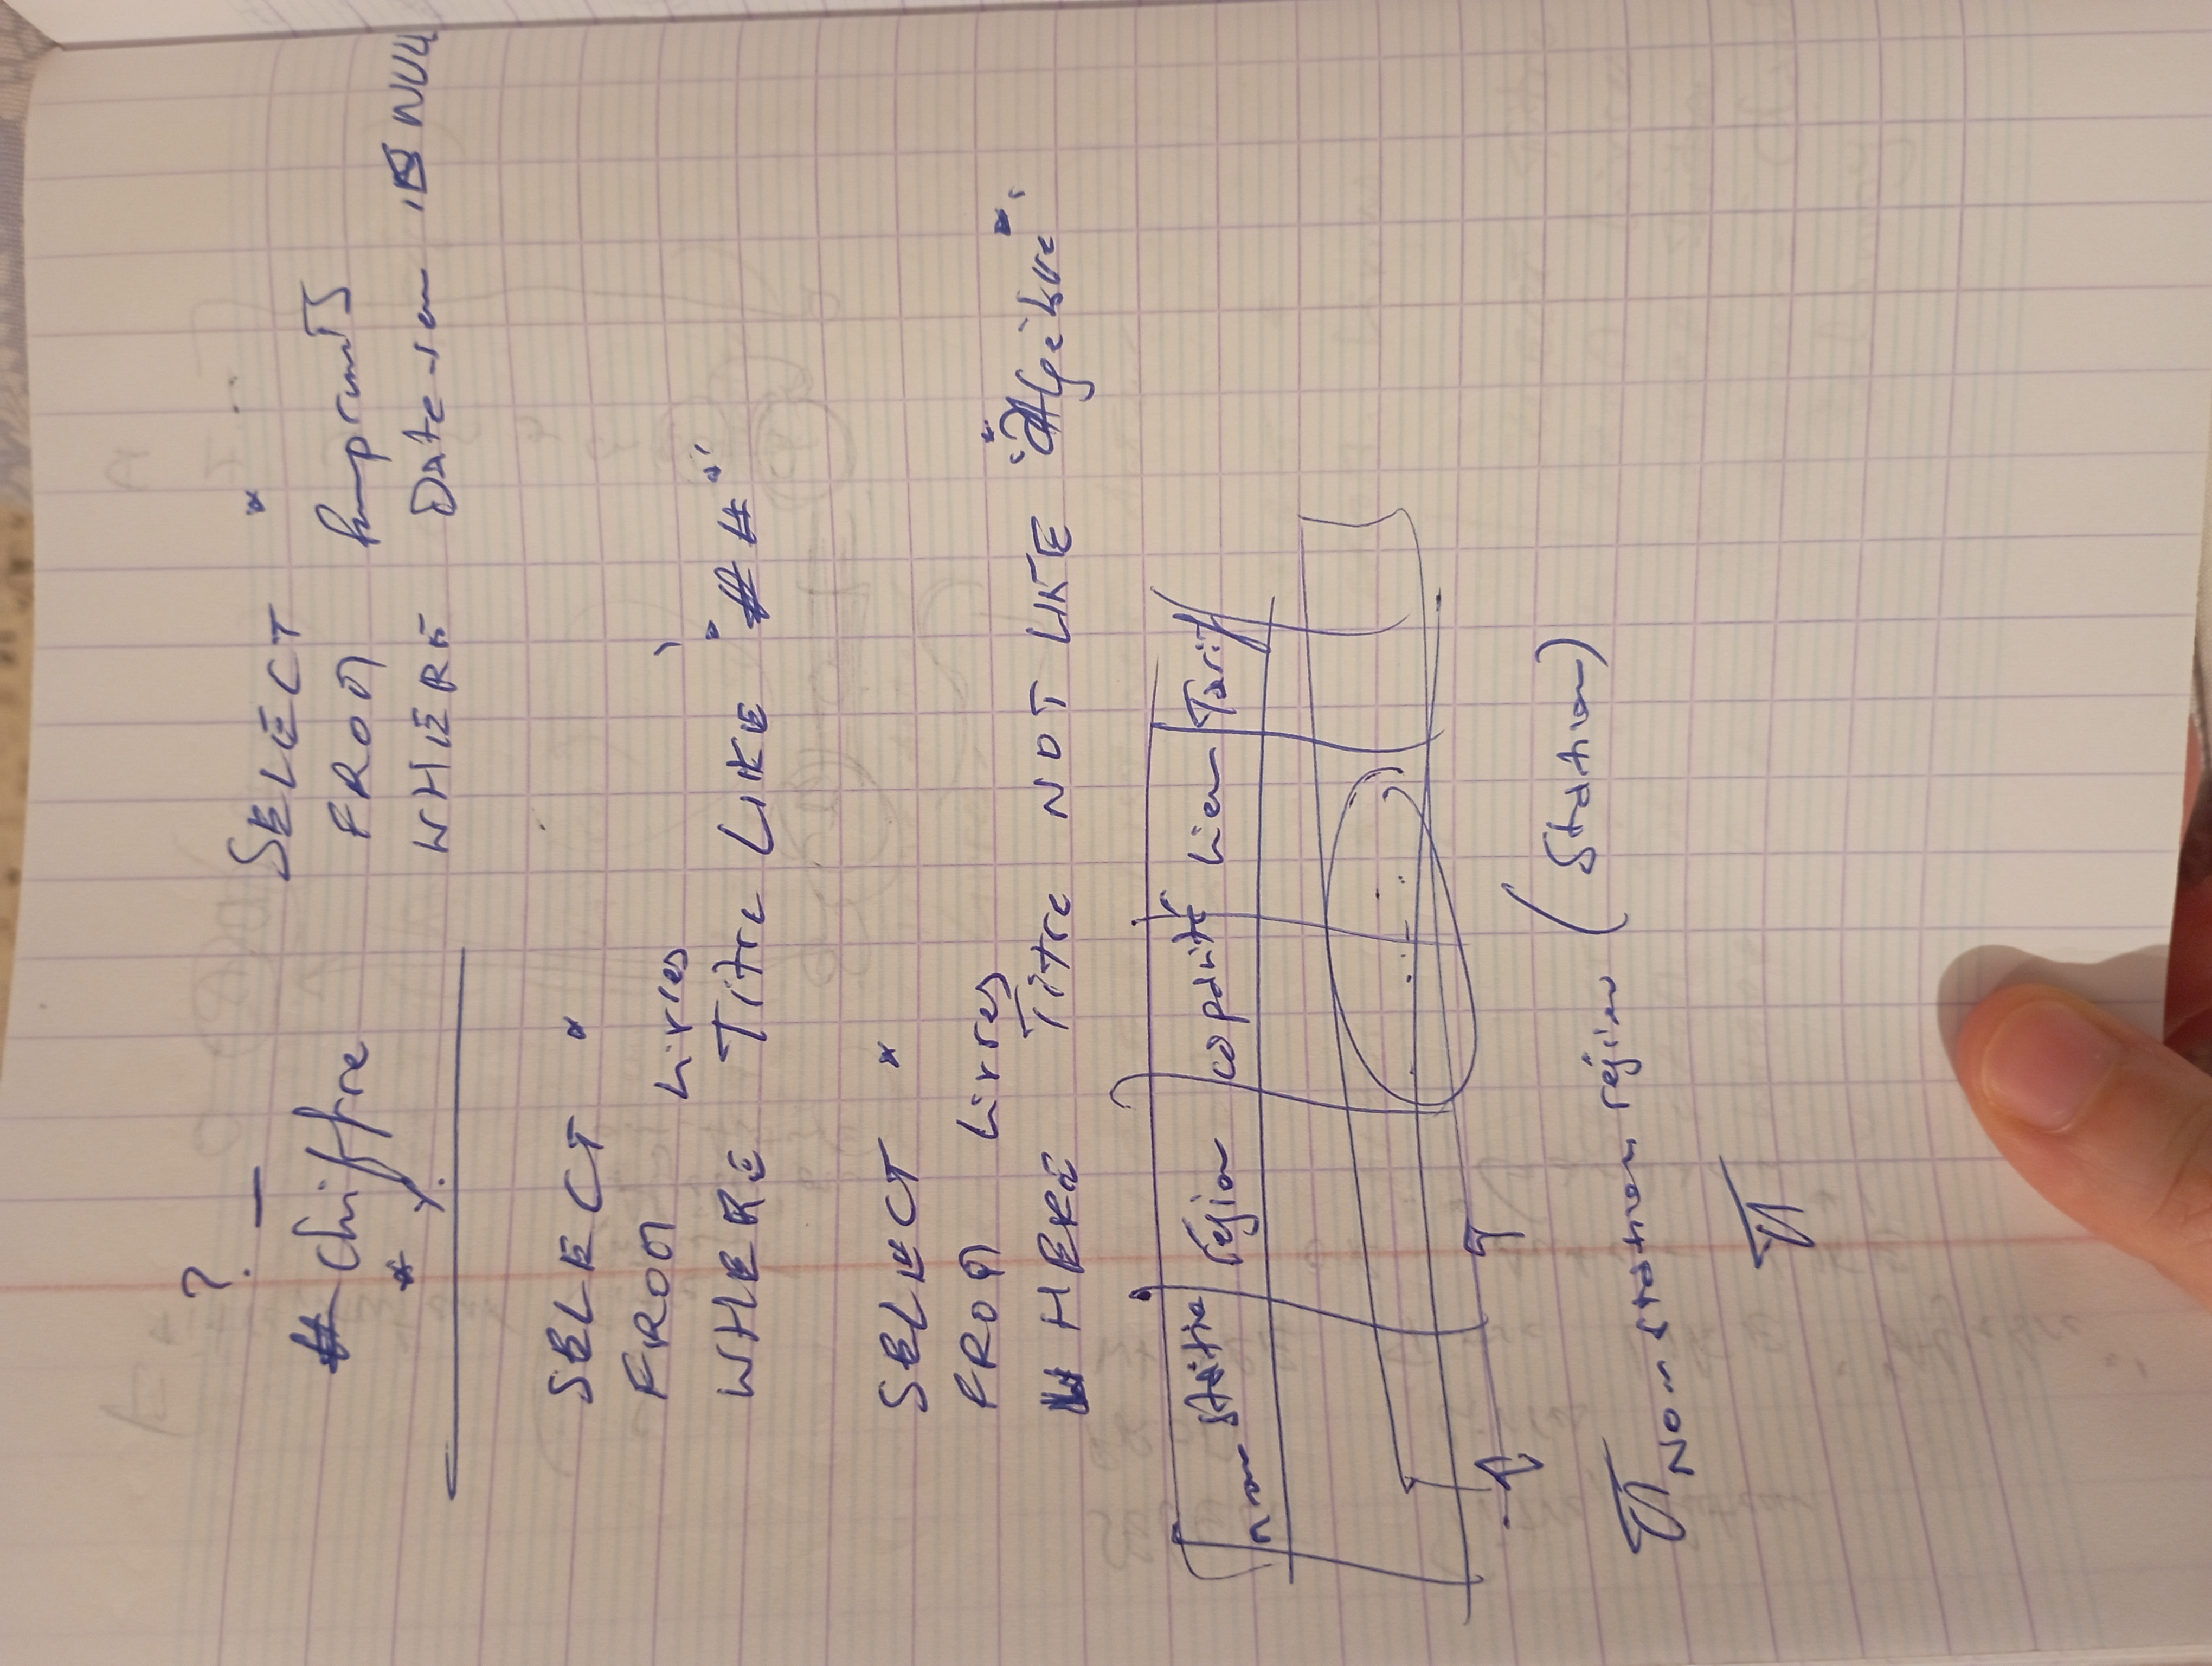 ? _
# Chiffre
* %
SELECT *
FROM Emprunts
WHERE Date-rem IS NULL
SELECT *
FROM Livres
WHERE Titre LIKE "*##*"
SELECT *
FROM Livres
WHERE Titre NOT LIKE "*Algèbre*"
nom station région capacité Lieu Tarif
π Nom station, région (Station)
π